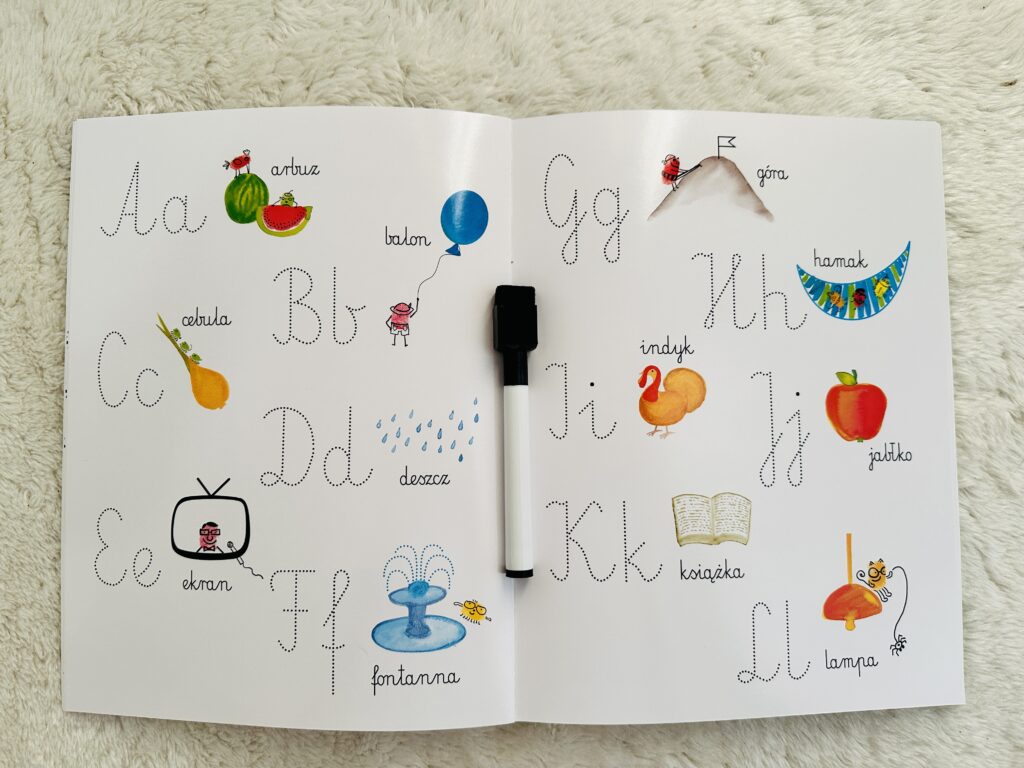 Aa
arbuz
Bb
balon
Cc
cebula
Dd
deszcz
Ee
ekran
Ff
fontanna
Gg
góra
Hh
hamak
Ii
indyk
Jj
jabłko
Kk
książka
Ll
lampa